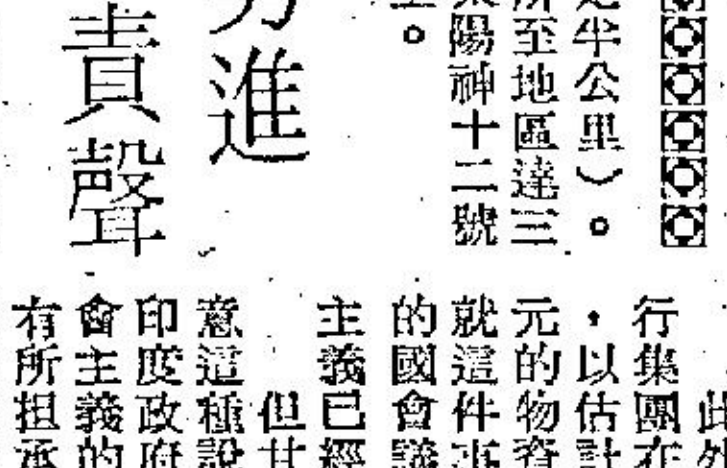 半公里）。
所至地區達三
陽神十二號
。
進
責聲
此外
行集團在
，以估計
元的物資
就這件事
的國會議
主義已經
但
意這種說
印度政府
會主義的
有所担承